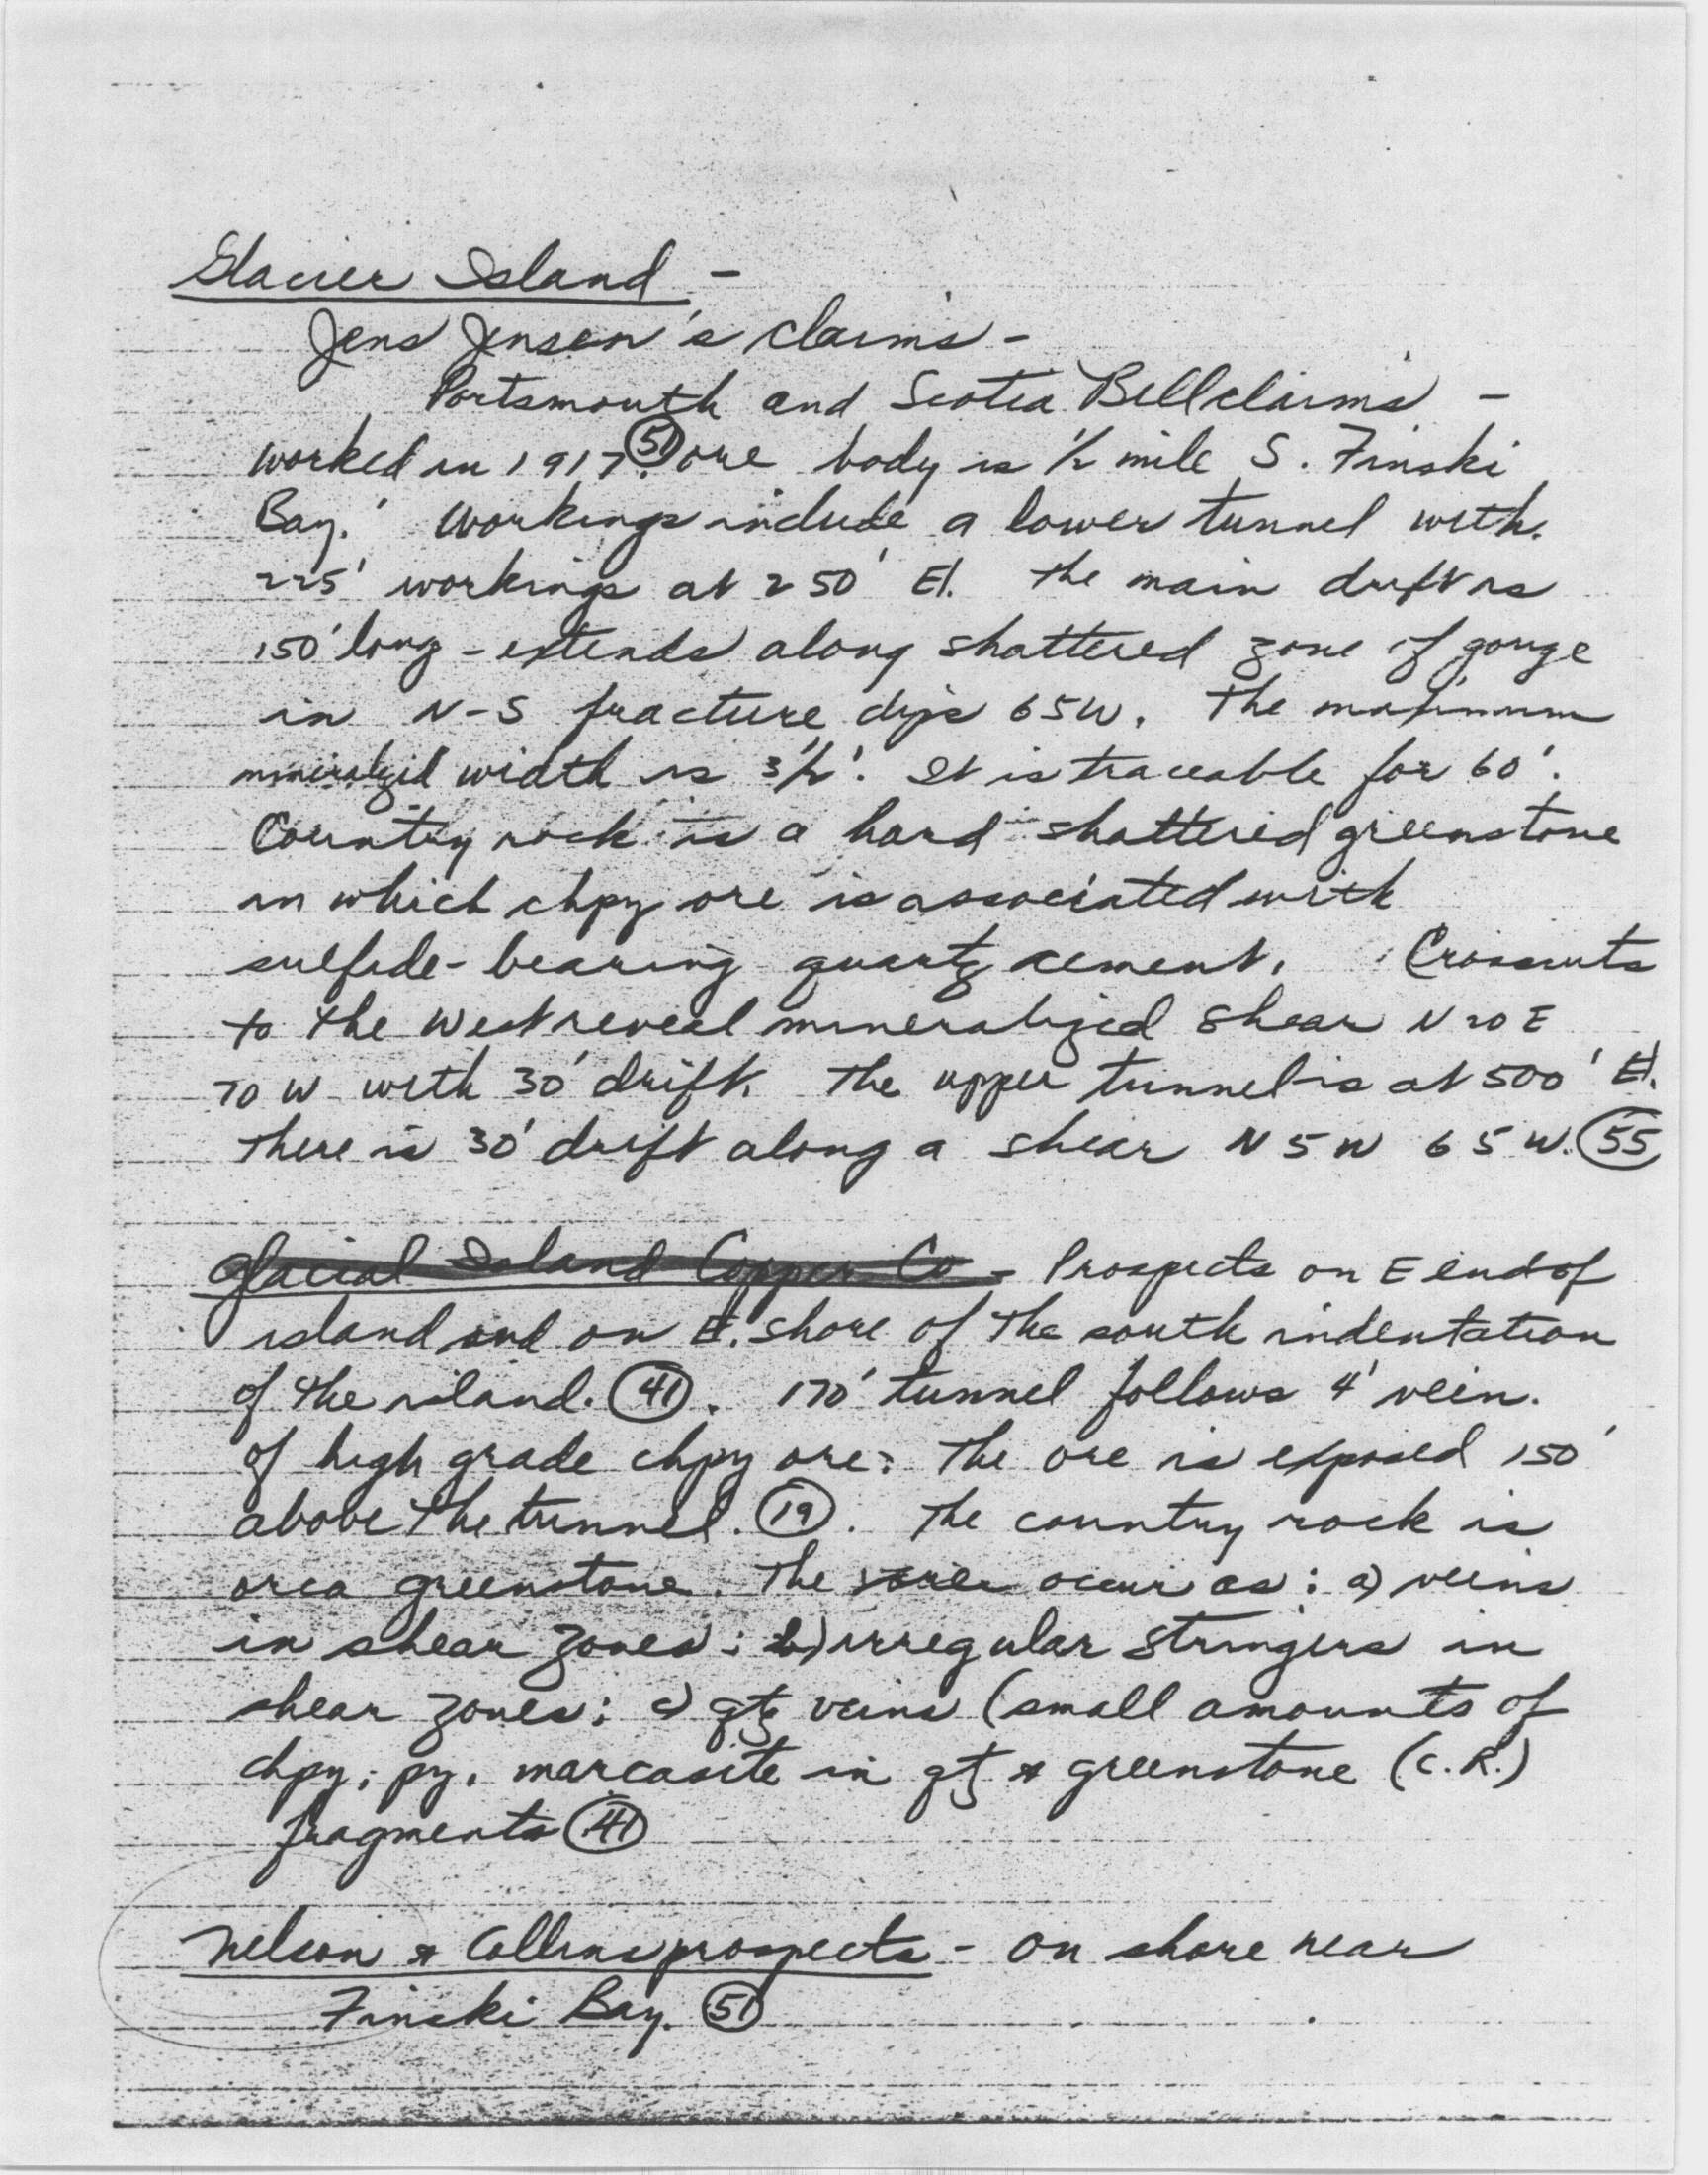 Glacier Island -
Jens Jensen's claims -
Portsmouth and Scotia Bell claims -
worked in 1917. (51) ore body is 1/2 mile S. Finski
Bay. Workings include a lower tunnel with
225' workings at 250' El. The main drift is
150' long - extends along shattered zone of gouge
in N-S fracture dips 65W. The maximum
mineralized width is 3 1/2'. It is traceable for 60'.
Country rock is a hard shattered greenstone
in which chpy ore is associated with
sulfide-bearing quartz cement. Crosscuts
to the West reveal mineralized shear N 20 E
70 W with 30' drift. The upper tunnel is at 500' El.
There is 30' drift along a shear N 5 W 65 W. (55)
Glacial Island Copper Co - Prospects on E end of
island and on E. shore of the south indentation
of the island. (41). 170' tunnel follows 4' vein.
of high grade chpy ore. The ore is exposed 150'
above the tunnel. (19). The country rock is
orca greenstone. The occur as: a) veins
in shear zones; b) irregular stringers in
shear zones; c) qtz veins (small amounts of
chpy, py, marcasite in qtz & greenstone (C.R.)
fragments (41)
Nelson & Collins prospects - On shore near
Finski Bay. (51)